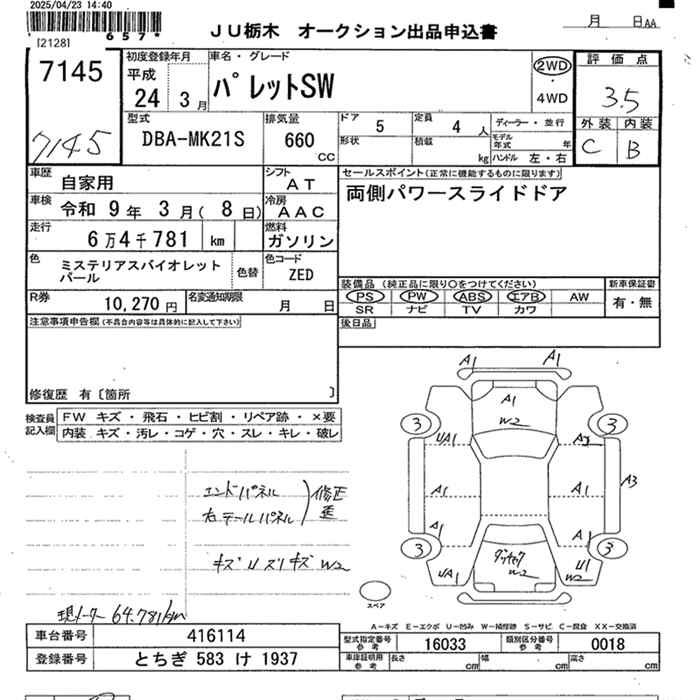 2025/04/23 14:40
657*
[2128]
JU栃木 オークション出品申込書
月 日AA
7145
7145
初度登録年月
平成
24 3 月
車名・グレード
パレットSW
2WD
・
4WD
評価点
3.5
外装 内装
C B
型式
DBA-MK21S
排気量
660
cc
ドア 5
定員 4 人
ディーラー・並行
形状
積載 kg
モデル年式 年
ハンドル 左・右
車歴 自家用
シフト AT
車検 令和 9 年 3 月( 8 日)
冷房 AAC
走行 6万4千781 km
燃料 ガソリン
色 ミステリアスバイオレットパール
色替
色コード ZED
R券 10,270 円
名変通知期限 月 日
セールスポイント(正常に機能するものに限ります)
両側パワースライドドア
装備品 (純正品に限り○をつけてください)
PS PW ABS エアB AW
SR ナビ TV カワ
新車保証書
有・無
後日品
注意事項申告欄(不具合内容等は具体的に記入して下さい)
修復歴 有〔箇所 〕
検査員記入欄
FW キズ・飛石・ヒビ割・リペア跡・×要
内装 キズ・汚レ・コゲ・穴・スレ・キレ・破レ
エンドパネル
右テールパネル
修正歪
キズ U ズリキズ W2
現メーター 64.781km
A1 A1
A1
W2
3 3
UA1
A1 A1 A3
A1 A1
3 3
UA1
W2
U1
W2
スペア
A－キズ E－エクボ U－凹ミ W－補修跡 S－サビ C－腐食 XX－交換済
車台番号 416114
登録番号 とちぎ 583 け 1937
型式指定番号参考 16033
類別区分番号参考 0018
車庫証明用参考 長さ cm 幅 cm 高さ cm